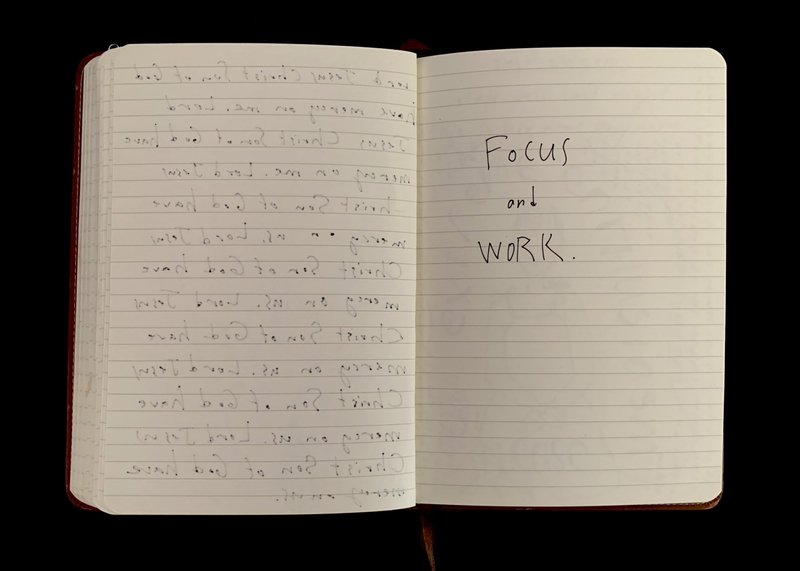 Lord Jesus Christ Son of God
have mercy on me. Lord
Jesus Christ Son of God have
mercy on me. Lord Jesus
Christ Son of God have
mercy on us. Lord Jesus
Christ Son of God have
mercy on us. Lord Jesus
Christ Son of God have
mercy on us. Lord Jesus
Christ Son of God have
mercy on us. Lord Jesus
Christ Son of God have
mercy on us.
FOCUS
and
WORK.